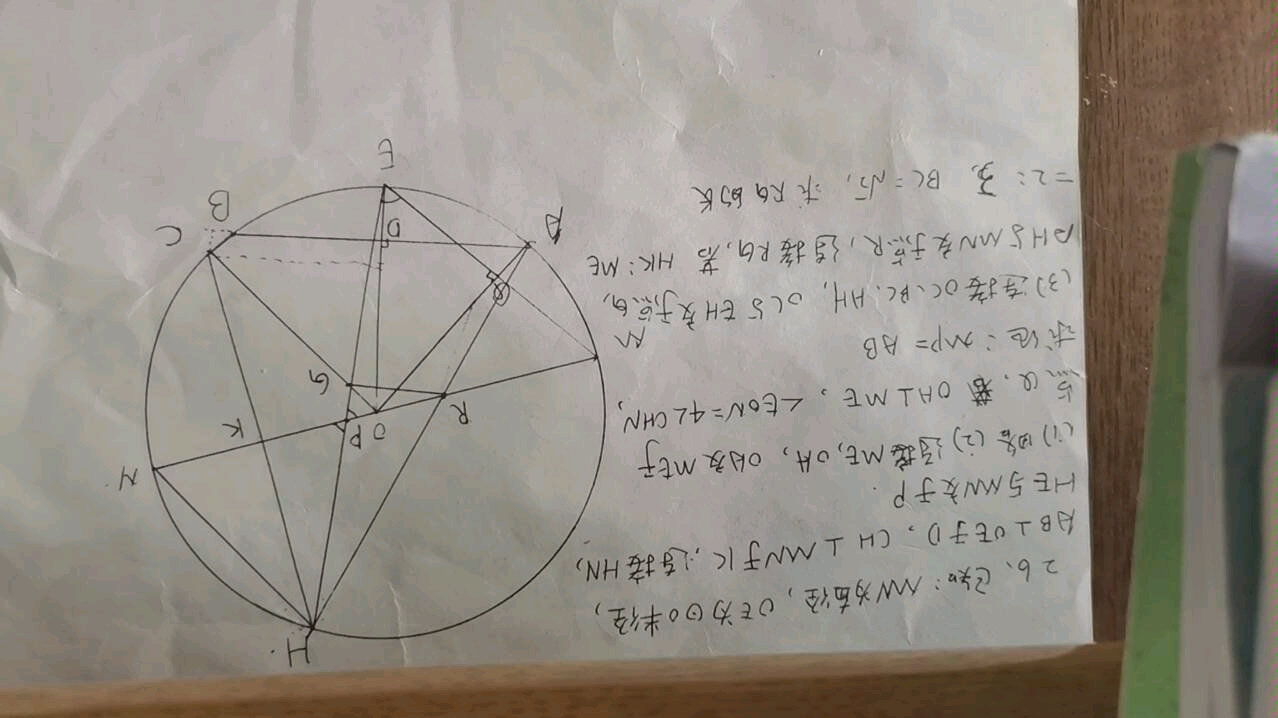 26、已知：MN为直径，OE为⊙O半径，
AB⊥OE于D，CH⊥MN于K，连接HN，
HE与MN交于P.
(1) (2)连接ME,OA，OA交ME于
点Q，若OA⊥ME，∠EON=4∠CHN，
求证：MP=AB
(3)连接OC、BC、AH，OC与EH交于点G，
AH与MN交于点R，连接RG，若HK：ME
=2：3，BC=√5，求RG的长
H
N
K
P
O
R
G
M
C
B
Q
D
A
E